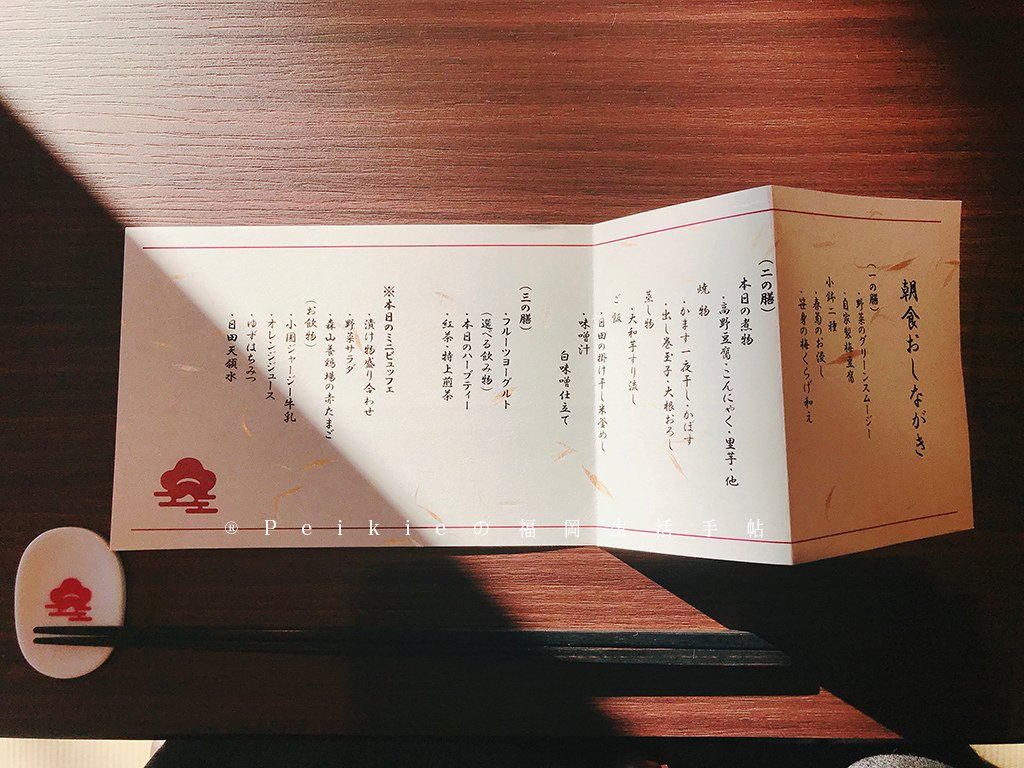 朝食おしながき
(一の膳)
・野菜のグリーンスムージー
・自家製梅豆腐
小鉢二種
・春菊のお浸し
・笹身の梅くらげ和え
(二の膳)
本日の煮物
・高野豆腐・こんにゃく・里芋・他
焼物
・かます一夜干し・かぼす
・出し巻玉子・大根おろし
蒸し物
・大和芋すり流し
ご飯
・日田の掛け干し米釜めし
・味噌汁
白味噌仕立て
(三の膳)
・フルーツヨーグルト
(選べる飲み物)
・本日のハーブティー
・紅茶・特上煎茶
※本日のミニビュッフェ
・漬け物盛り合わせ
・野菜サラダ
・森山養鶏場の赤たまご
(お飲物)
・小国ジャージー牛乳
・オレンジジュース
・ゆずはちみつ
・日田天領水
®Peikieの福岡生活手帖